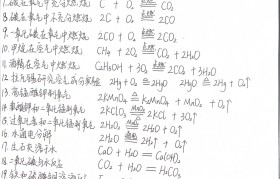 7.碳在氧气中充分燃烧 C + O₂ 点燃 CO₂
8.碳在氧气中不充分燃烧 2C + O₂ 点燃 2CO
9.一氧化碳在氧气中燃烧 2CO + O₂ 点燃 2CO₂
10.甲烷在空气中燃烧 CH₄ + 2O₂ 点燃 CO₂ + 2H₂O
11.酒精在空气中燃烧 C₂H₅OH + 3O₂ 点燃 2CO₂ + 3H₂O
12. 2Hg + O₂ 2HgO 2HgO 2Hg + O₂↑
13.高锰酸钾制氧气 2KMnO₄ K₂MnO₄ + MnO₂ + O₂↑
2KClO₃ MnO₂ 2KCl + 3O₂↑
2H₂O₂ MnO₂ 2H₂O + O₂↑
16.水通电分解 2H₂O 通电 2H₂↑ + O₂↑
17.生石灰溶于水 CaO + H₂O = Ca(OH)₂
18.二氧化碳与水反应 CO₂ + H₂O = H₂CO₃